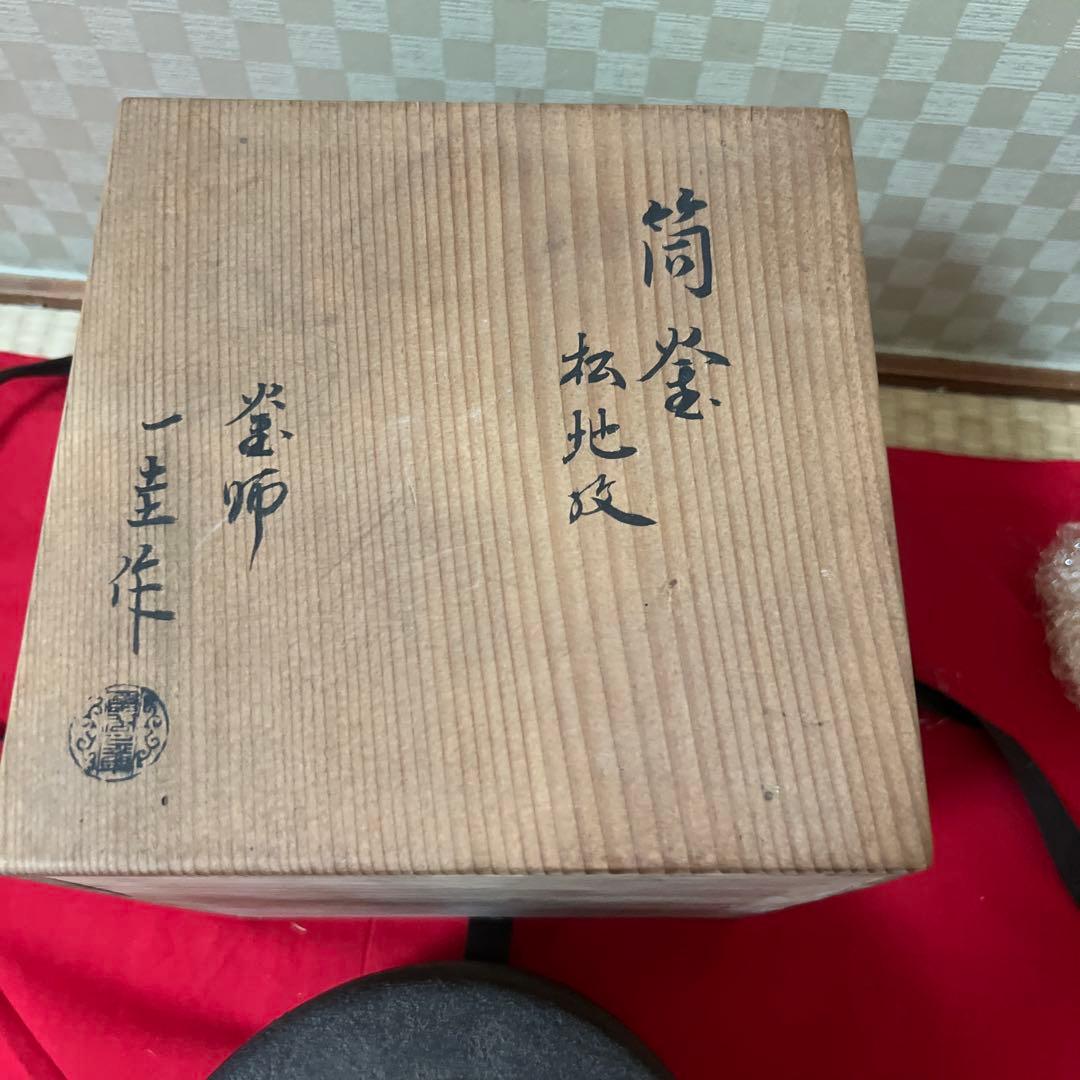 筒釜
松地紋
釜師
一圭作